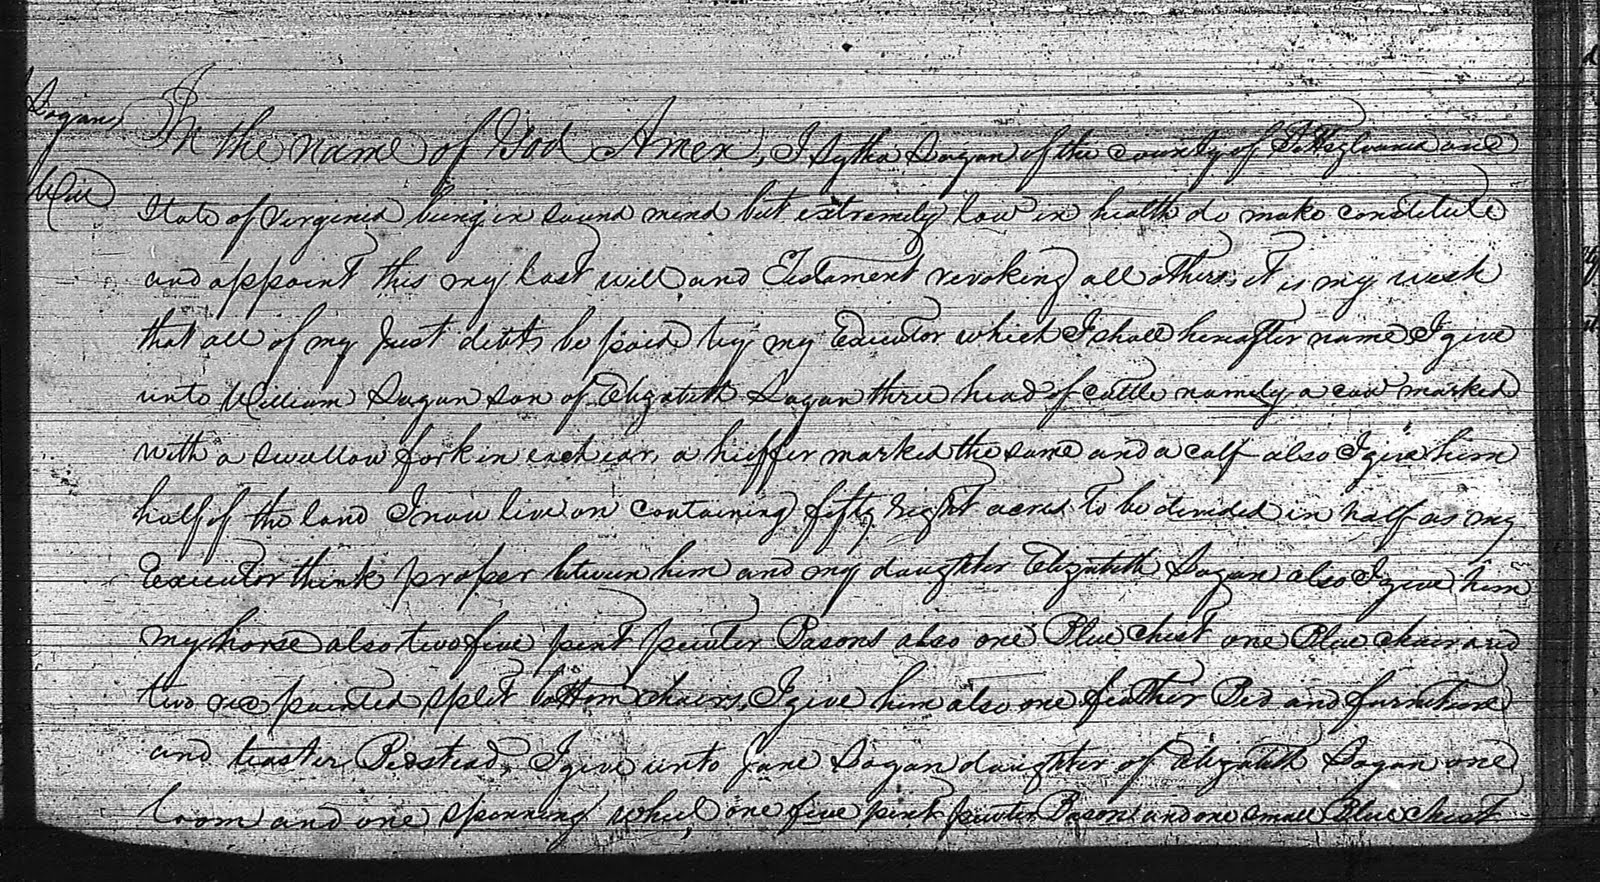 Dogans
Will
In the name of God Amen, I Sytha Dogan of the county of Pittsylvania and
State of Virginia being in sound mind but extremely low in health do make constitute
and appoint this my last will and Testament revoking all others, it is my wish
that all of my Just debts be paid by my Executor which I shall hereafter name I give
unto William Dogan son of Elizabeth Dogan three head of cattle namely a cow marked
with a swallow fork in each ear, a hieffer marked the same and a calf also I give him
half of the land I now live on containing fifty Eight acres to be divided in half as my
Executor think proper between him and my daughter Elizabeth Dogan also I give him
my horse also two five pint pewter Basons also one Blue chest one Blue chair and
two red painted split bottom chairs, I give him also one feather Bed and furniture
and teaster Bedstead, I give unto Jane Dogan daughter of Elizabeth Dogan one
loom and one spinning wheel one five pint pewter Bason and one small Blue chest